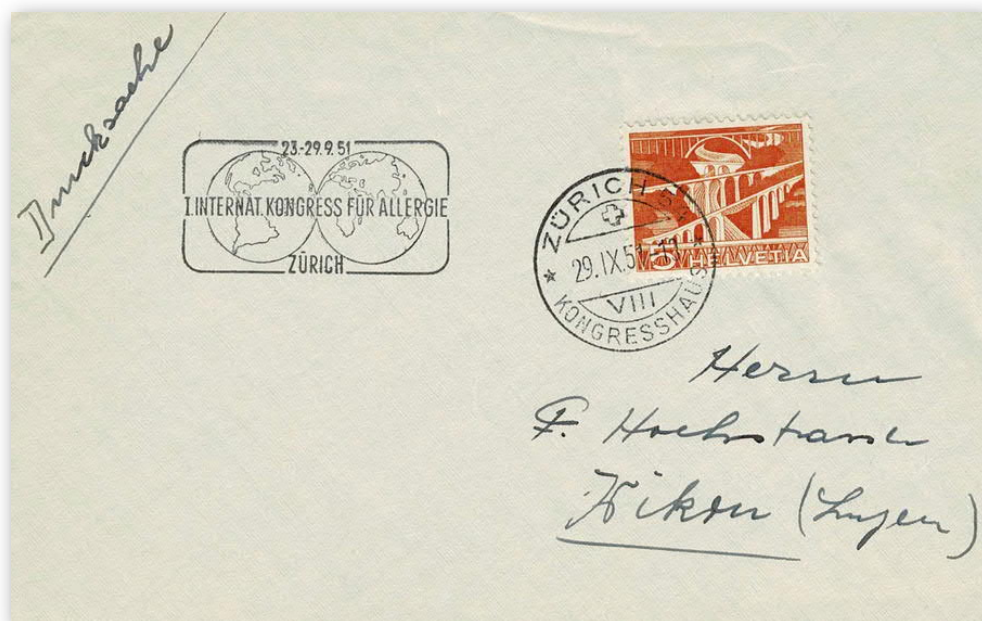 Drucksache
23.-29.9.51
I. INTERNAT. KONGRESS FÜR ALLERGIE
ZÜRICH
ZÜRICH
29.IX.51.-11
VIII
KONGRESSHAUS
5 HELVETIA
Herrn
F.
Wikon (Luzern)